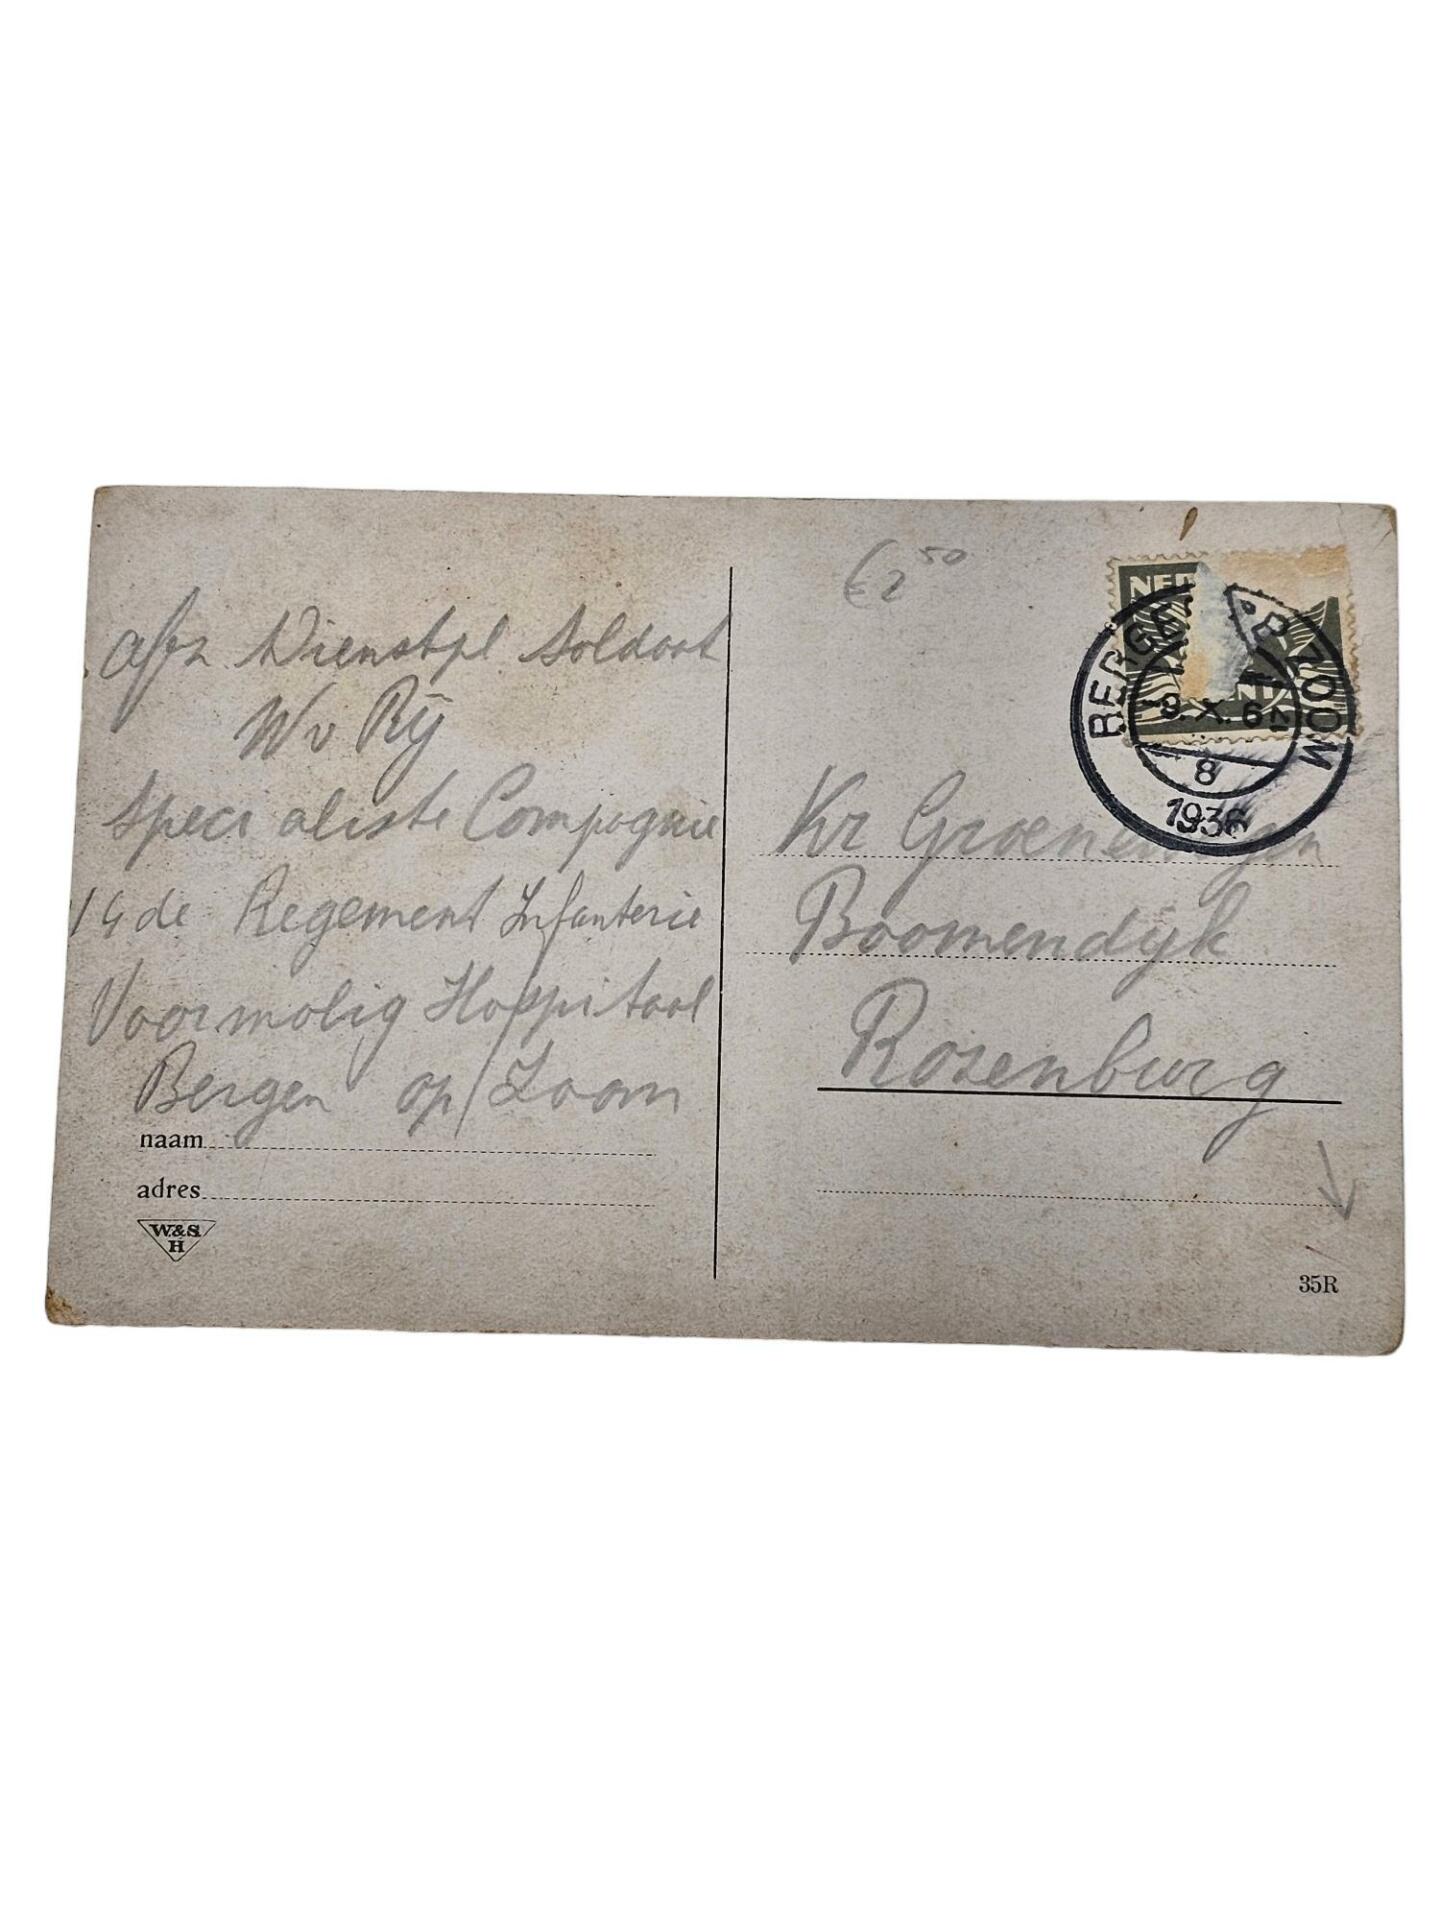 afz Dienstpl Soldaat
W v Rij
Specialiste Compagnie
14de Regement Infanterie
Voormalig Hospitaal
Bergen op Zoom
naam
adres
W.&S.
H
€2 50
NED
BERGEN
ZOOM
9.X.6
8
1936
Kr Groenewegen
Boomendijk
Rosenburg
35R